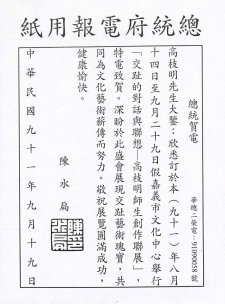 總統府電報用紙
總統賀電
華總二榮電：91090058號
高枝明先生大鑒：欣悉訂於本（九十一）年八月
十四日至九月二十九日假嘉義市文化中心舉行
「交趾的對話與聯想—高枝明師生創作聯展」，
特電致賀。深盼於此盛會展現交趾藝術瑰寶，共
同為文化藝術薪傳而努力。敬祝展覽圓滿成功，
健康愉快。
陳水扁
中華民國九十一年九月十九日